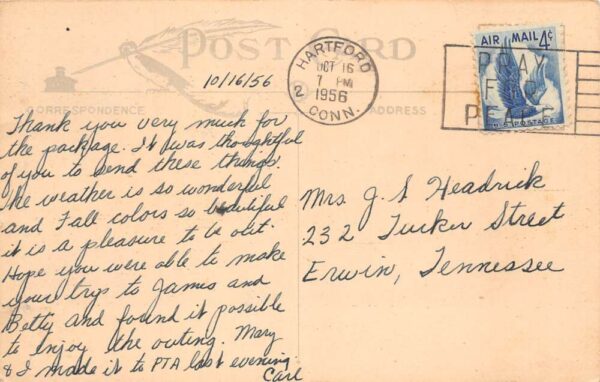 POST CARD
10/16/56
CORRESPONDENCE
ADDRESS
HARTFORD
2 CONN.
OCT 16
7 PM
1956
PRAY
FOR
PEACE
AIR MAIL 4¢
U.S. POSTAGE
Thank you very much for
the package. It was thoughtful
of you to send these things!
The weather is so wonderful
and Fall colors so beautiful
it is a pleasure to be out.
Hope you were able to make
your trip to James and
Betty and found it possible
to enjoy the outing. Mary
& I made it to PTA last evening
Carl
Mrs J. S Headrick
232 Tucker Street
Erwin, Tennessee